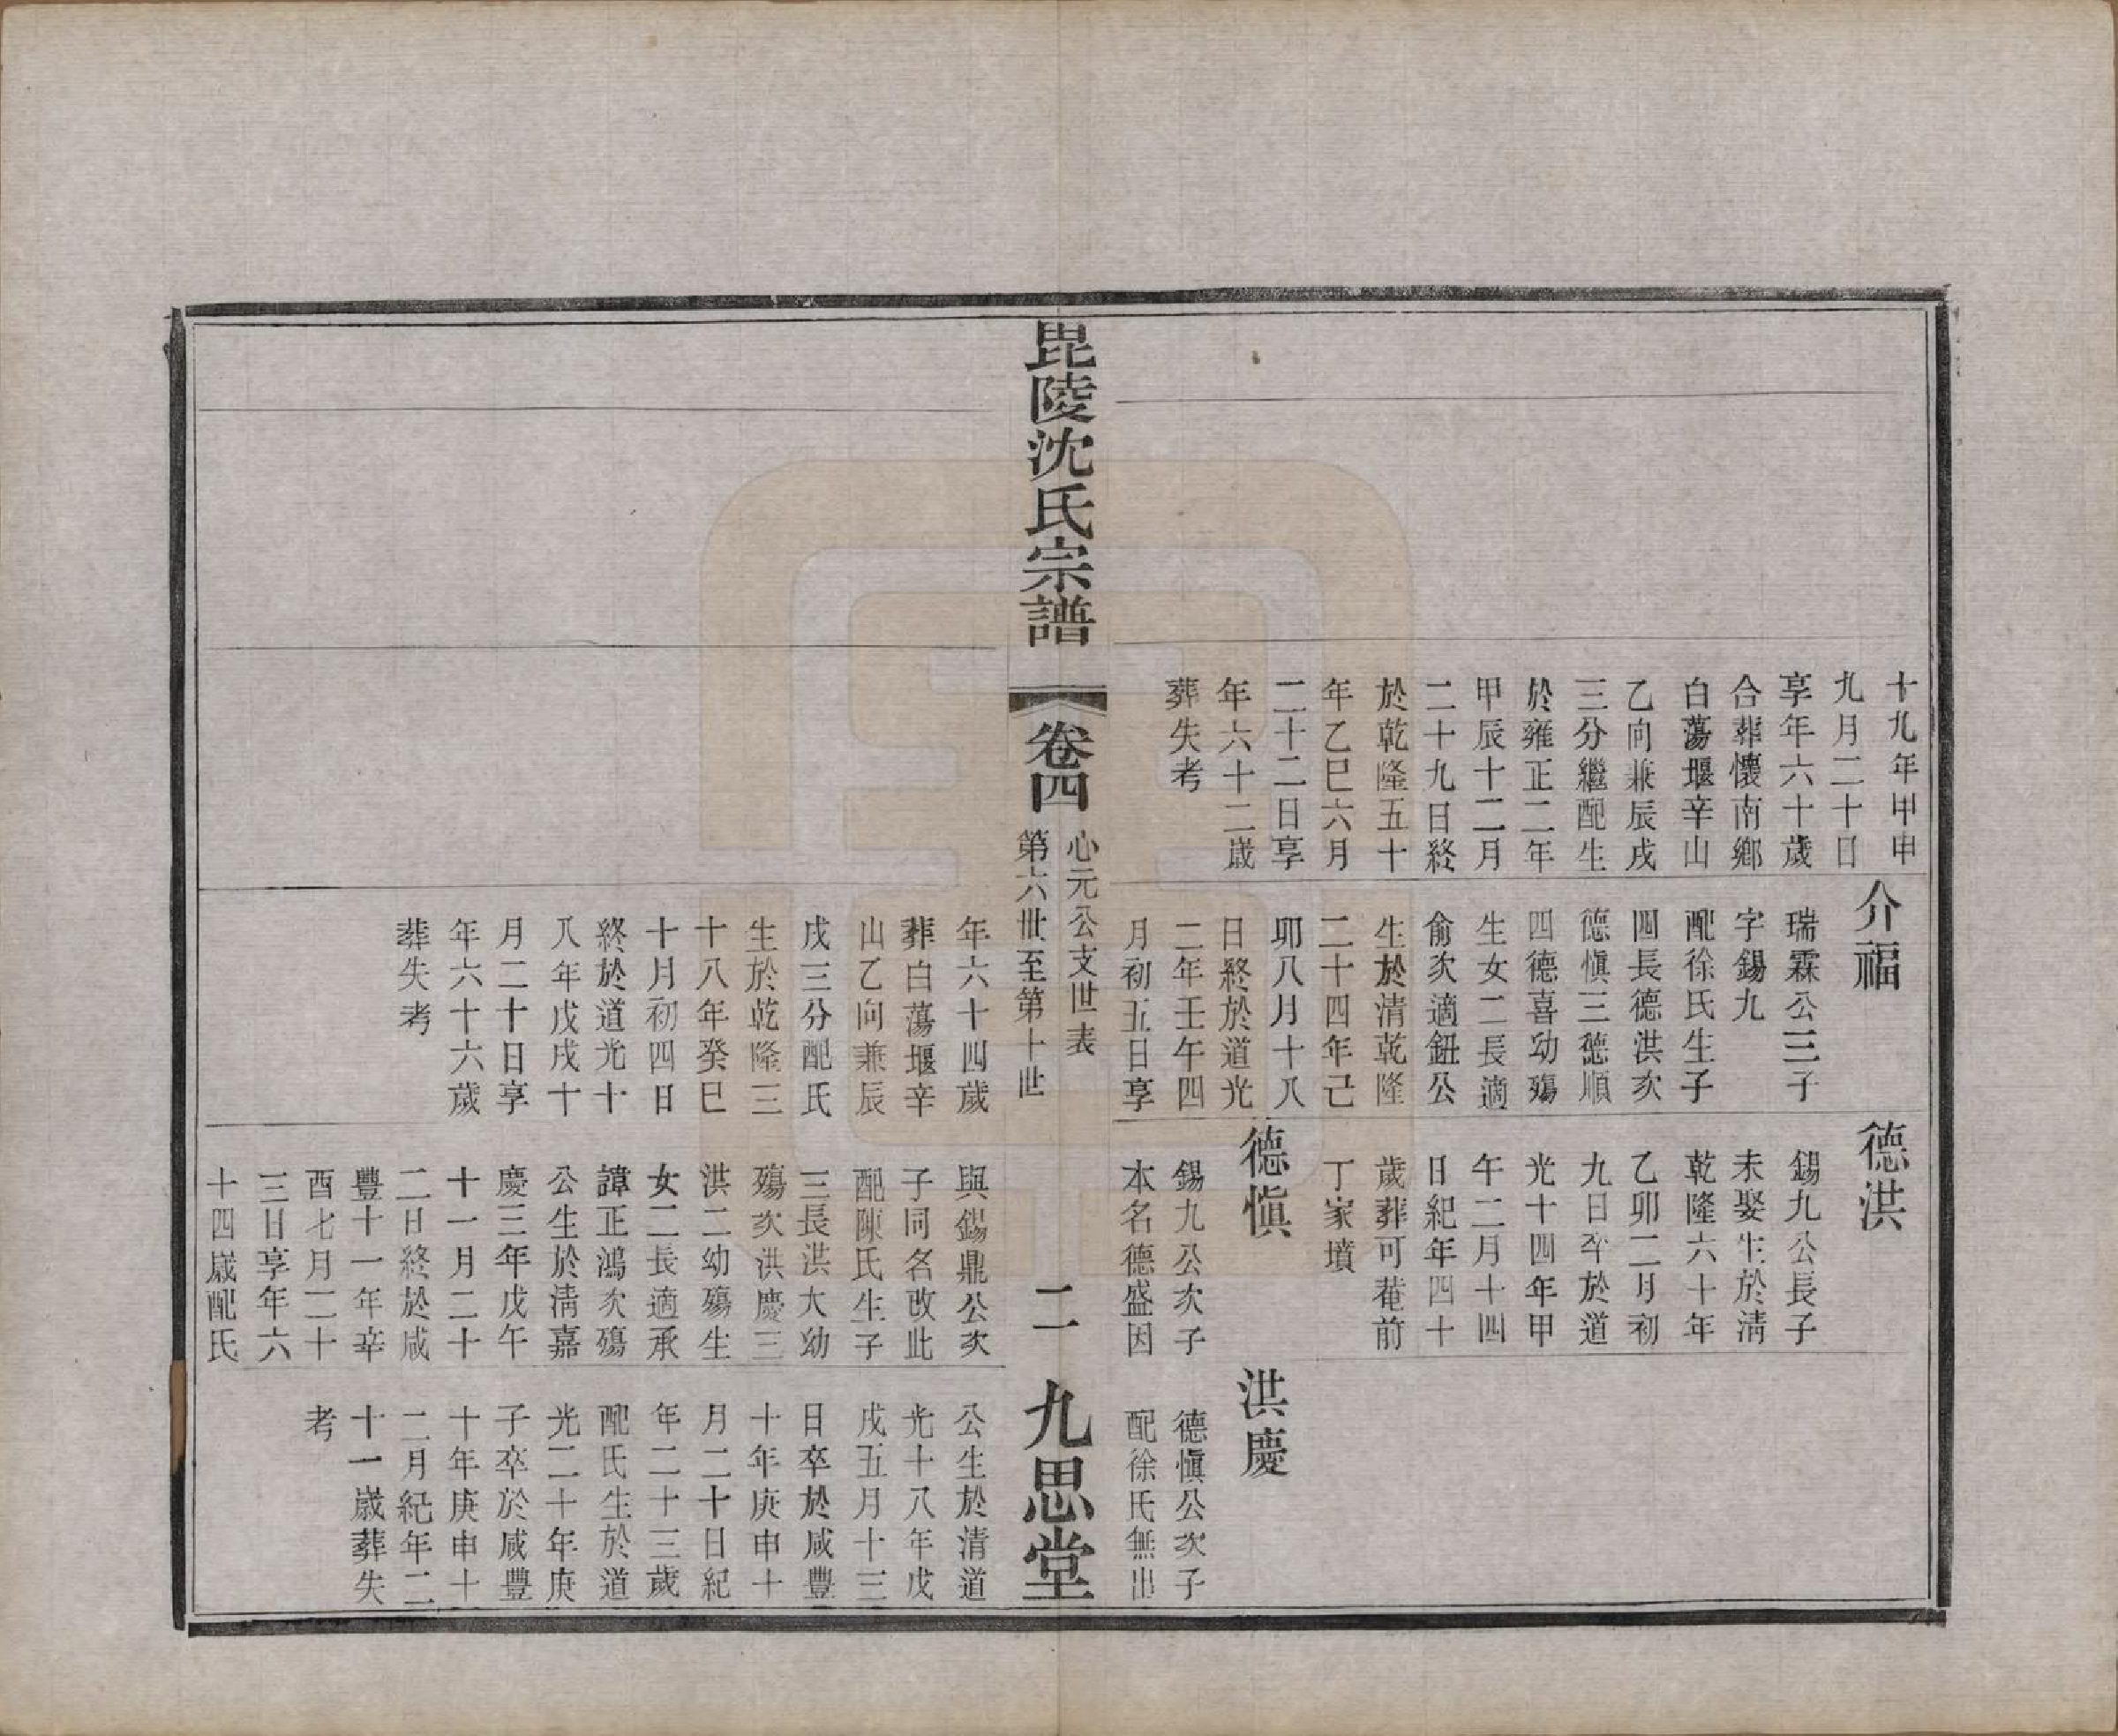 十九年甲申
九月二十日
享年六十歲
合葬懷南鄉
白蕩堰辛山
乙向兼辰戌
三分繼配生
於雍正二年
甲辰十二月
二十九日終
於乾隆五十
年乙巳六月
二十二日享
年六十二歲
葬失考
介福
瑞霖公三子
字錫九
配徐氏生子
四長德洪次
德愼三德順
四德喜幼殤
生女二長適
俞次適鈕公
生於清乾隆
二十四年己
卯八月十八
日終於道光
二年壬午四
月初五日享
德洪
錫九公長子
未娶生於清
乾隆六十年
乙卯二月初
九日卒於道
光十四年甲
午二月十四
日紀年四十
歲葬可菴前
丁家墳
德愼
錫九公次子
本名德盛因
洪慶
德愼公次子
配徐氏無出
毘陵沈氏宗譜
卷四
心元公支世表
第六世至第十世
二
九思堂
年六十四歲
葬白蕩堰辛
山乙向兼辰
戌三分配氏
生於乾隆三
十八年癸巳
十月初四日
終於道光十
八年戊戌十
月二十日享
年六十六歲
葬失考
與錫鼎公次
子同名改此
配陳氏生子
三長洪大幼
殤次洪慶三
洪二幼殤生
女二長適承
諱正鴻次殤
公生於清嘉
慶三年戊午
十一月二十
二日終於咸
豐十一年辛
酉七月二十
三日享年六
十四歲配氏
公生於清道
光十八年戊
戌五月十三
日卒於咸豐
十年庚申十
月二十日紀
年二十三歲
配氏生於道
光二十年庚
子卒於咸豐
十年庚申十
二月紀年二
十一歲葬失
考